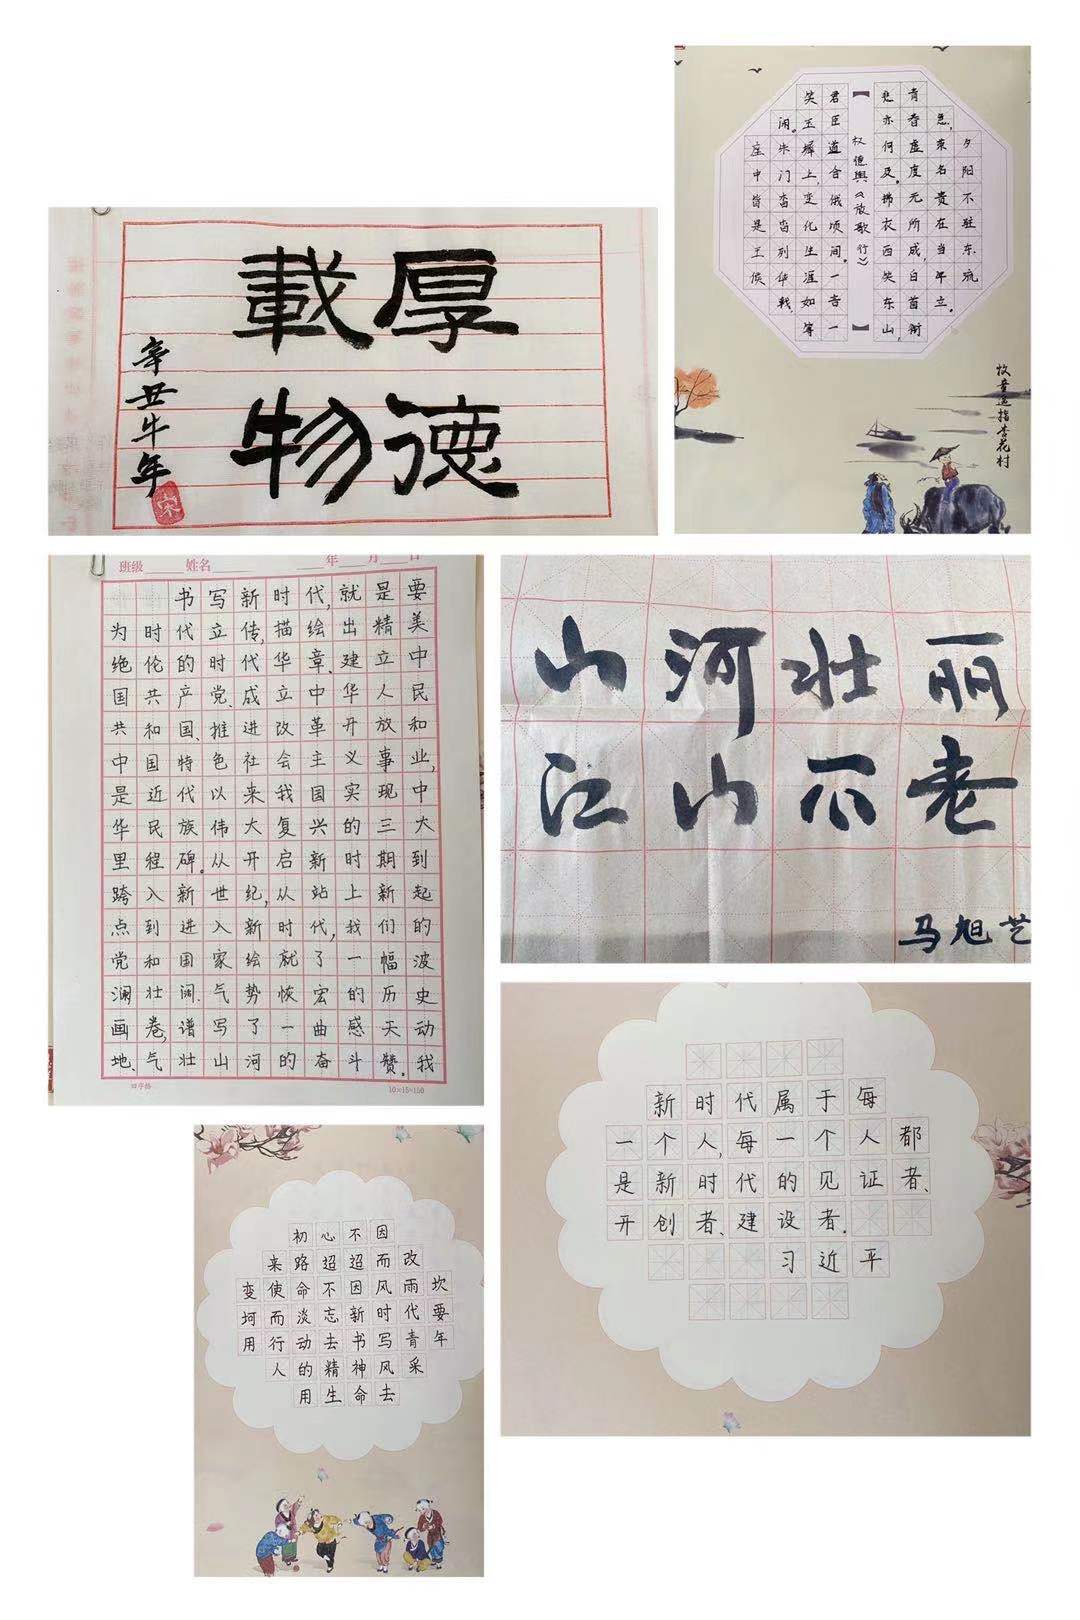 厚德
載物
辛丑牛年
夕阳不驻东流
急,荣名贵在当年立。
青春虚度无所成,白首衔
悲亦何及。拂衣西笑东山,
【权德舆《放歌行》】
君臣道合俄顷间。一言一
笑玉墀上,变化生涯如等
闲。朱门沓沓列华戟,
座中皆是王侯
牧童遥指杏花村
班级 姓名 年 月 日
书写新时代,就是要
为时代立传,描绘出精美
绝伦的时代华章。建立中
国共产党、成立中华人民
共和国、推进改革开放和
中国特色社会主义事业,
是近代以来我国实现中
华民族伟大复兴的三大
里程碑。从开启新时期到
跨入新世纪,从站上新起
点到进入新时代,我们的
党和国家绘就了一幅波
澜壮阔、气势恢宏的历史
画卷,谱写了一曲感天动
地、气壮山河的奋斗赞。我
田字格 10×15=150
山河壮丽
江山不老
马旭艺
新时代属于每
一个人,每一个人都
是新时代的见证者、
开创者、建设者。
习近平
初心不因
来路迢迢而改
变使命不因风雨坎
坷而淡忘新时代要
用行动去书写青年
人的精神风采
用生命去